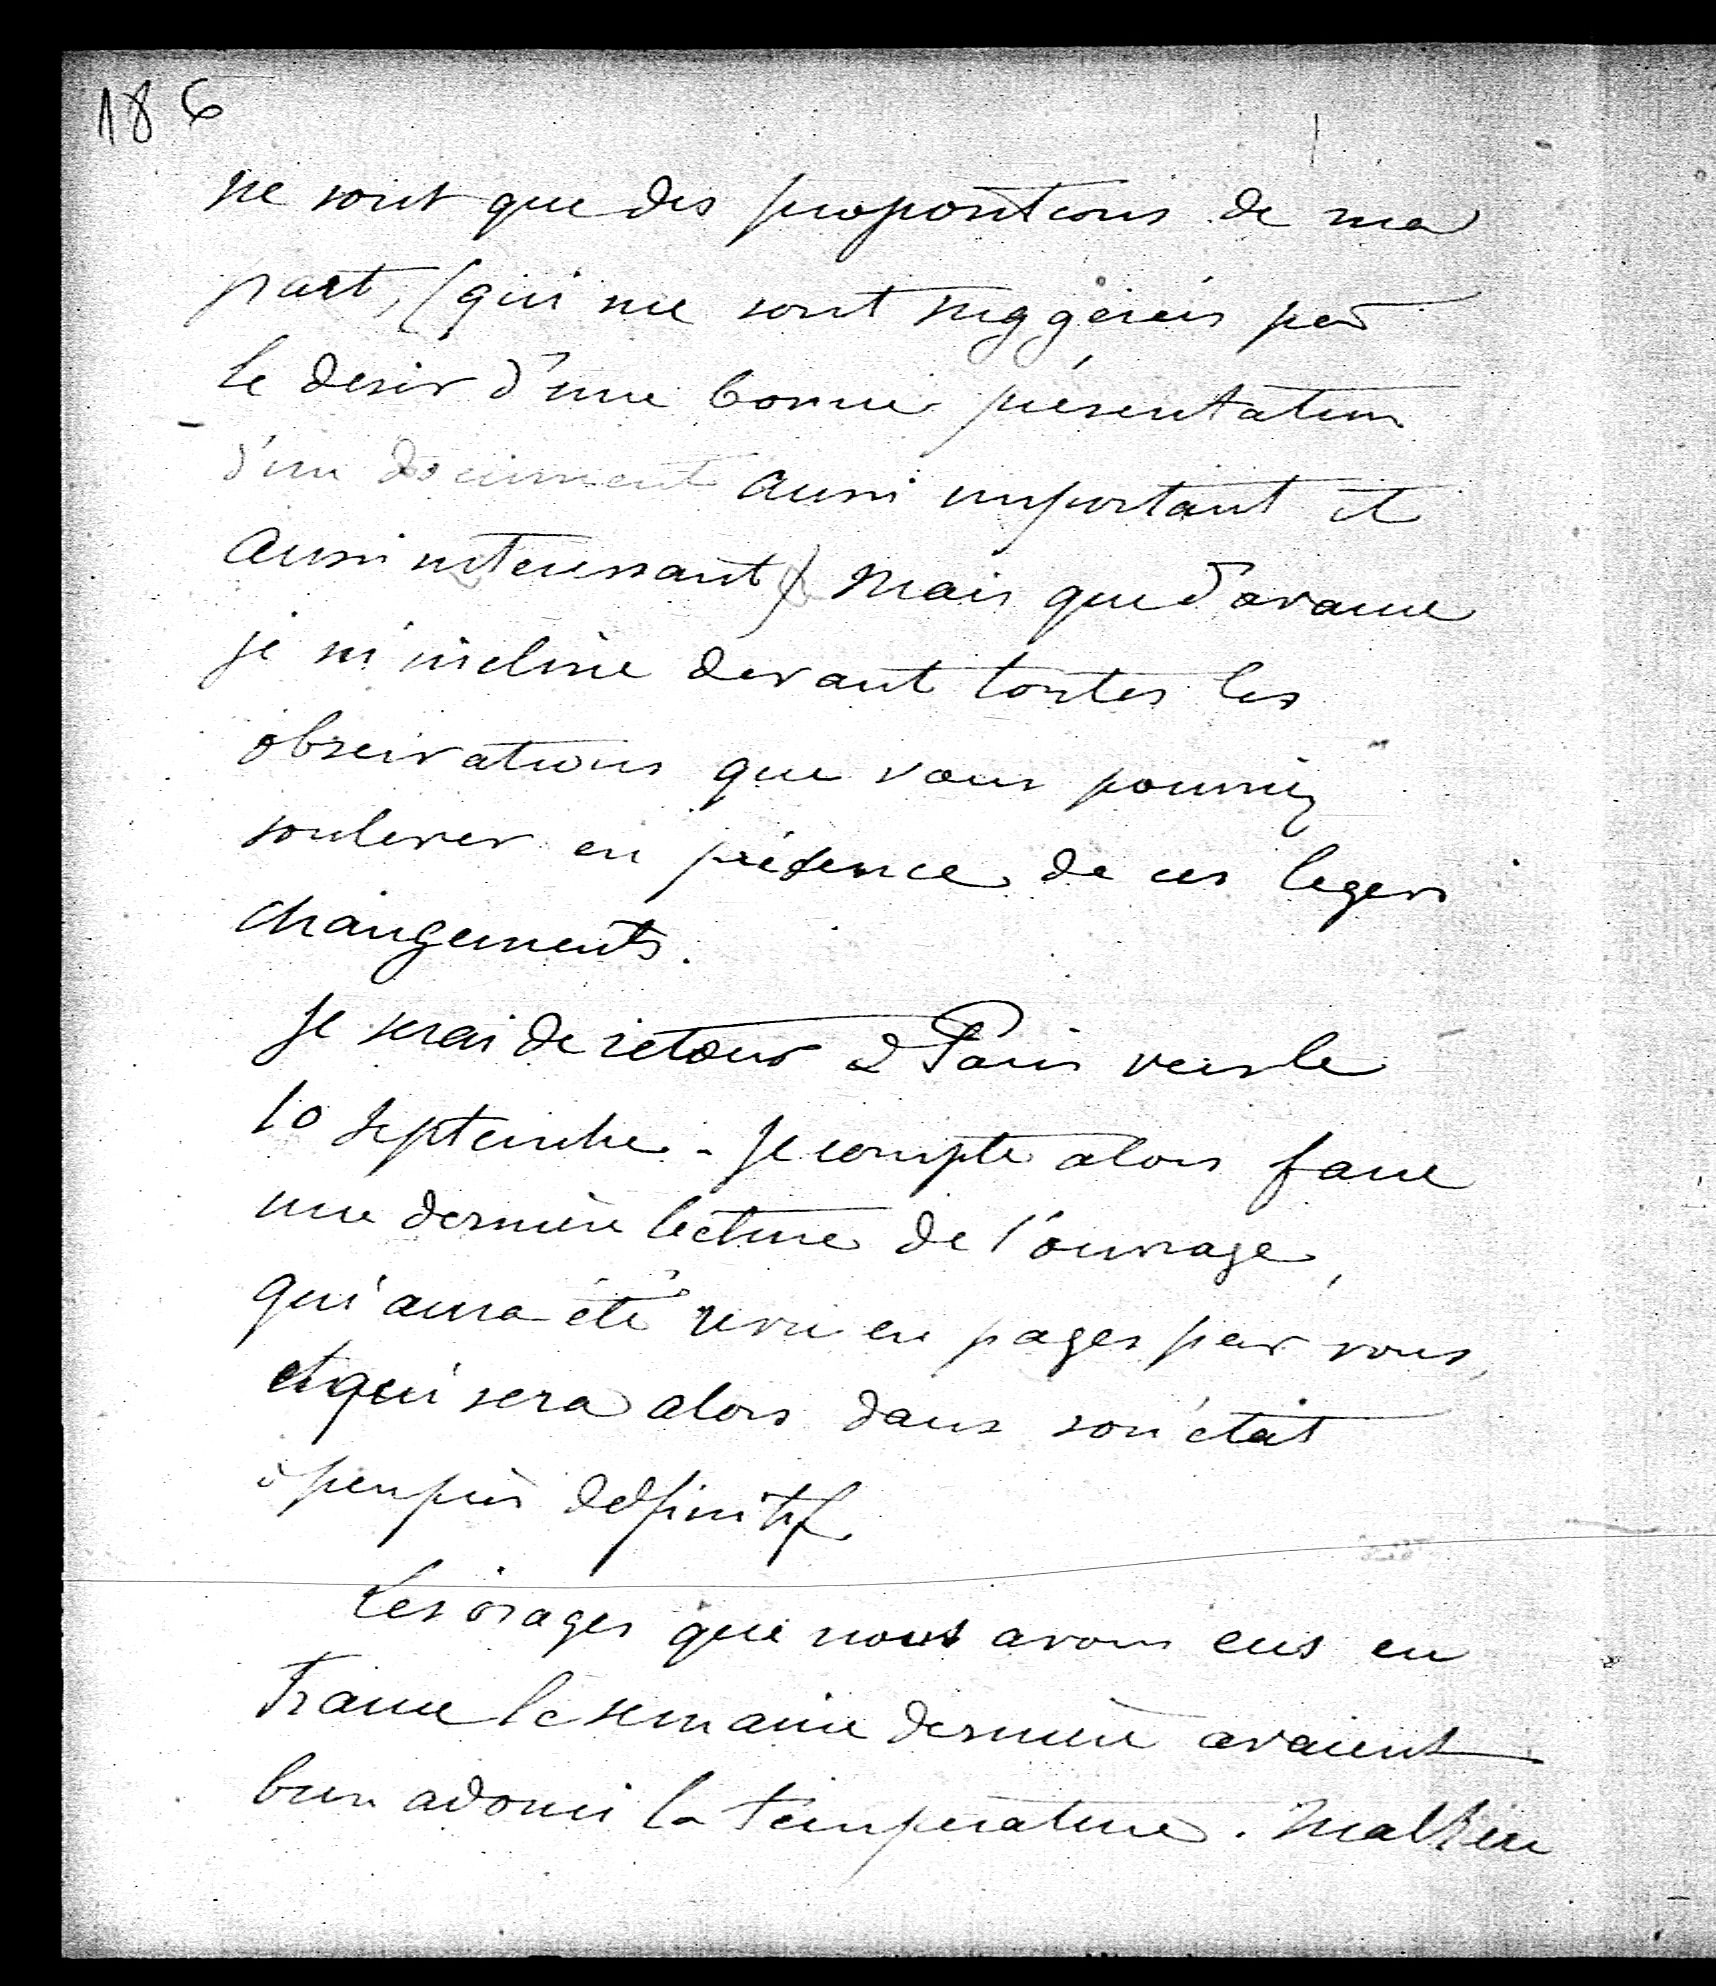 186
ne sont que des propositions de ma
part, (qui me sont suggérées par
le desir d'une bonne présentation
d'un document aussi important et
aussi interessant) mais que d'avance
je m'incline devant toutes les
observations que vous pourriez
soulever en présence de ces legers
changements.
Je serai de retour à Paris vers le
10 Septembre. Je compte alors faire
une dernière lecture de l'ouvrage,
qui aura été revu en pages par vous,
et qui sera alors dans son état
à peu près definitif
Les orages que nous avons eus en
France la semaine dernière avaient
bien adouci la température. Malheu